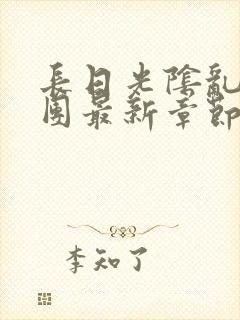 長日光陰亂
團最新章節
李知了